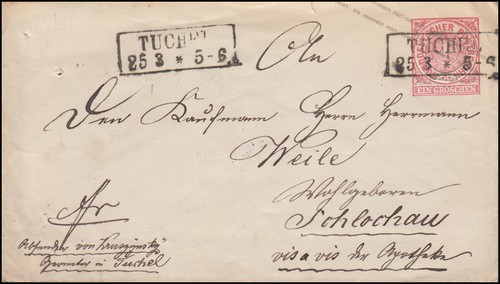 TUCHEL
25 3 * 5-6
TUCHEL
25 3 * 5-6
EIN GROSCHEN
An
Den Kaufmann Herrn Herrmann
Weile
Wohlgeboren
Schlochau
vis a vis der Apotheke
Absender von
Geometer in Tuchel